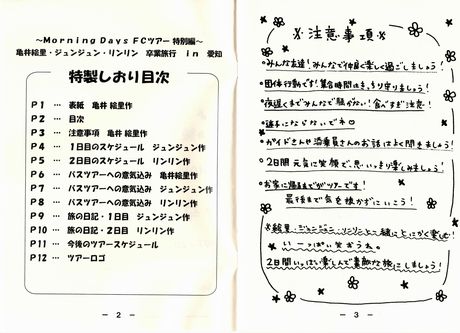 ～Morning Days FCツアー 特別編～
亀井絵里・ジュンジュン・リンリン 卒業旅行 in 愛知
特製しおり目次
P1 … 表紙 亀井 絵里作
P2 … 目次
P3 … 注意事項 亀井 絵里作
P4 … 1日目のスケジュール ジュンジュン作
P5 … 2日目のスケジュール リンリン作
P6 … バスツアーへの意気込み 亀井絵里作
P7 … バスツアーへの意気込み ジュンジュン作
P8 … バスツアーへの意気込み リンリン作
P9 … 旅の日記・1日目 ジュンジュン作
P10 … 旅の日記・2日目 リンリン作
P11 … 今後のツアースケジュール
P12 … ツアーロゴ
－ 2 －
※注意事項※
○みんな友達！みんなで仲良く楽しく過ごしましょう！
○団体行動です！集合時間にはきっちり守りましょう！
○夜遅くまでみんなで騒がない！食べすぎ注意！
○迷子にならないでネ♡
○ガイドさんや添乗員さんのお話はよく聞きましょう！
○2日間元気に笑顔で、思いっきり楽しみましょう！
○お家に帰るまでがツアーです！
最後まで気を抜かずにいこう！
※絵里・ジュンジュン・リンリンと一緒にとにかく楽しむ！
いーっぱい笑おうね。
2日間いっぱい楽しんで素敵な旅にしましょう！
－ 3 －